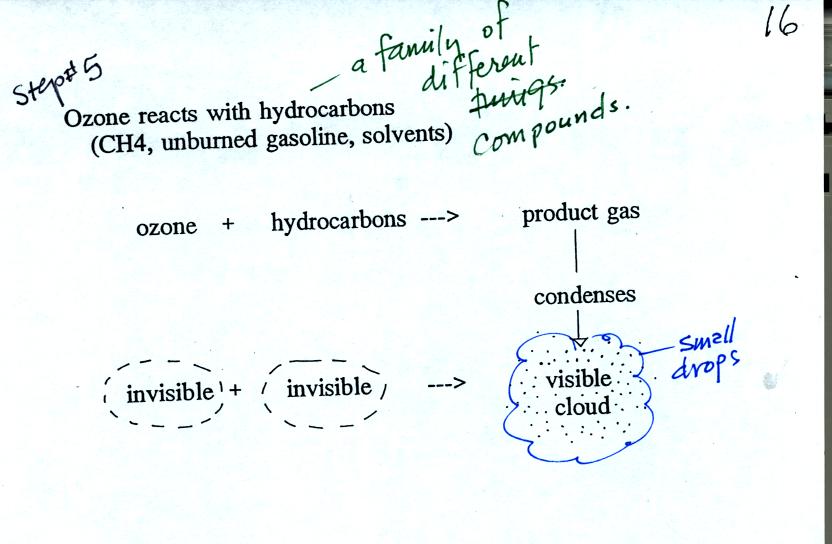 16
Step# 5
a family of
different
things.
compounds.
Ozone reacts with hydrocarbons
(CH4, unburned gasoline, solvents)
ozone + hydrocarbons ---> product gas
condenses
small
drops
invisible + invisible ---> visible
cloud